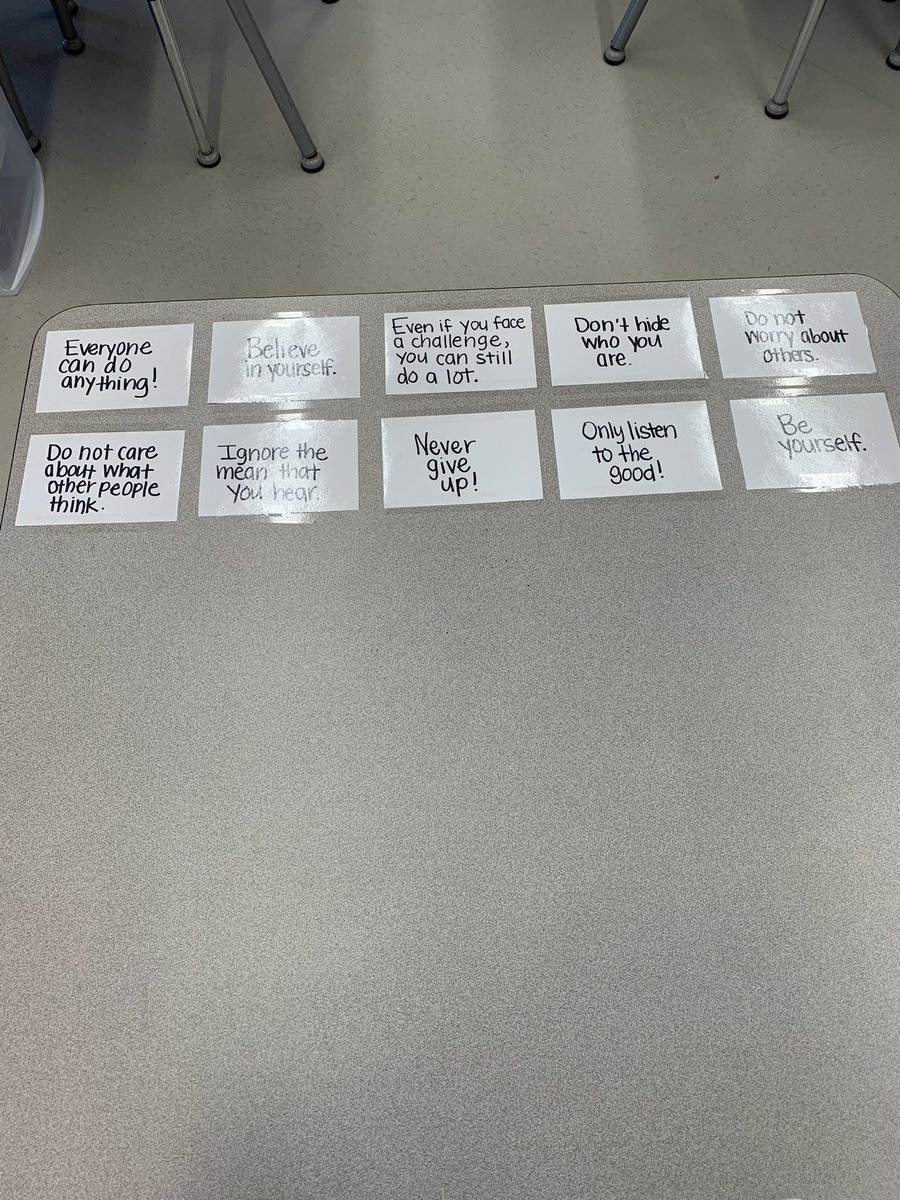 Everyone
can do
anything!
Believe
in yourself.
Even if you face
a challenge,
you can still
do a lot.
Don't hide
who you
are.
Do not
worry about
others.
Do not care
about what
other people
think.
Ignore the
mean that
you hear.
Never
give
up!
Only listen
to the
good!
Be
yourself.